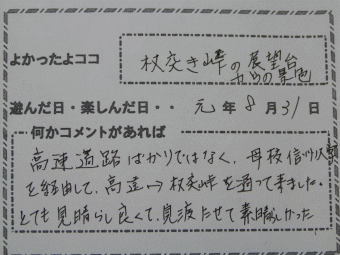 よかったよココ
杖突き峠の展望台
からの景色
遊んだ日・楽しんだ日・・ 元 年 8 月 31 日
何かコメントがあれば
高速道路ばかりではなく、
を経由して、高遠→杖突峠を通って来ました。
とても見晴らし良くて、見渡たせて素晴しかった